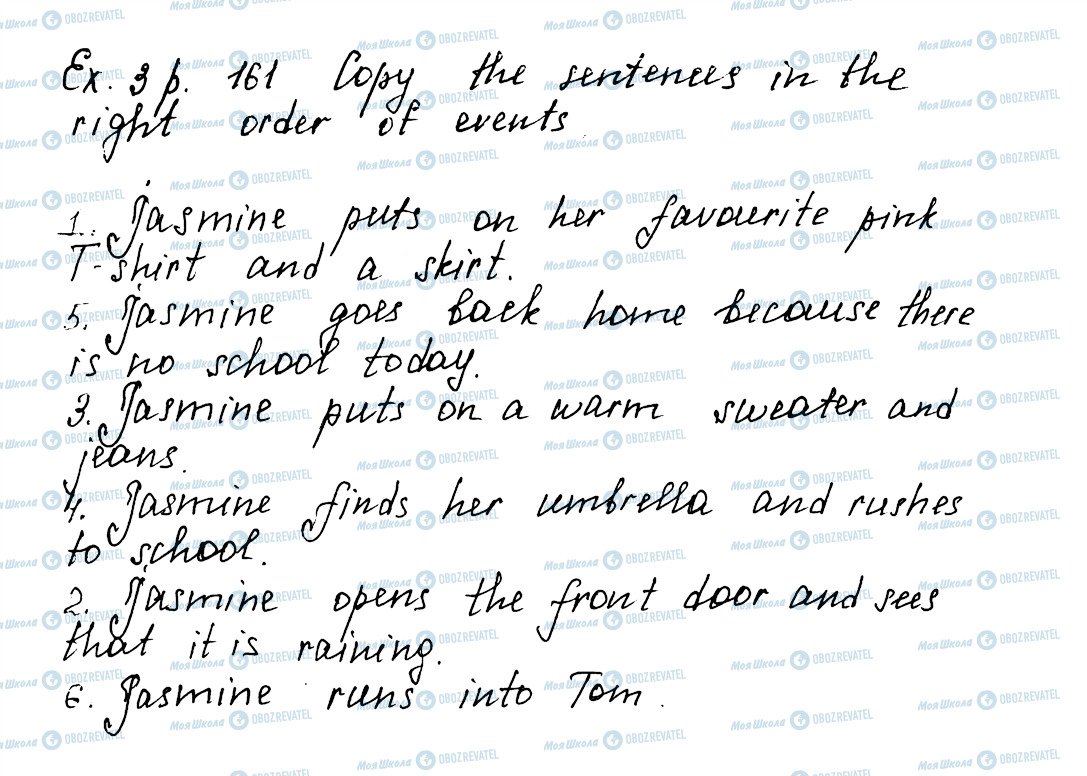 Ex. 3 p. 161 Copy the sentences in the
right order of events
1. Jasmine puts on her favourite pink
T-shirt and a skirt.
5. Jasmine goes back home because there
is no school today.
3. Jasmine puts on a warm sweater and
jeans.
4. Jasmine finds her umbrella and rushes
to school.
2. Jasmine opens the front door and sees
that it is raining.
6. Jasmine runs into Tom.